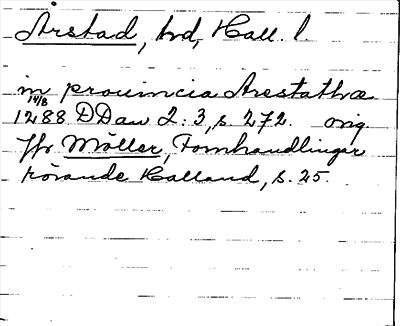 Årstad, hd, Hall. l.
in prouincia Arestathræ
14/8
1288 DDan 2:3, s. 272. orig.
Jfr Möller, Fornhandlingar
rörande Halland, s. 25.